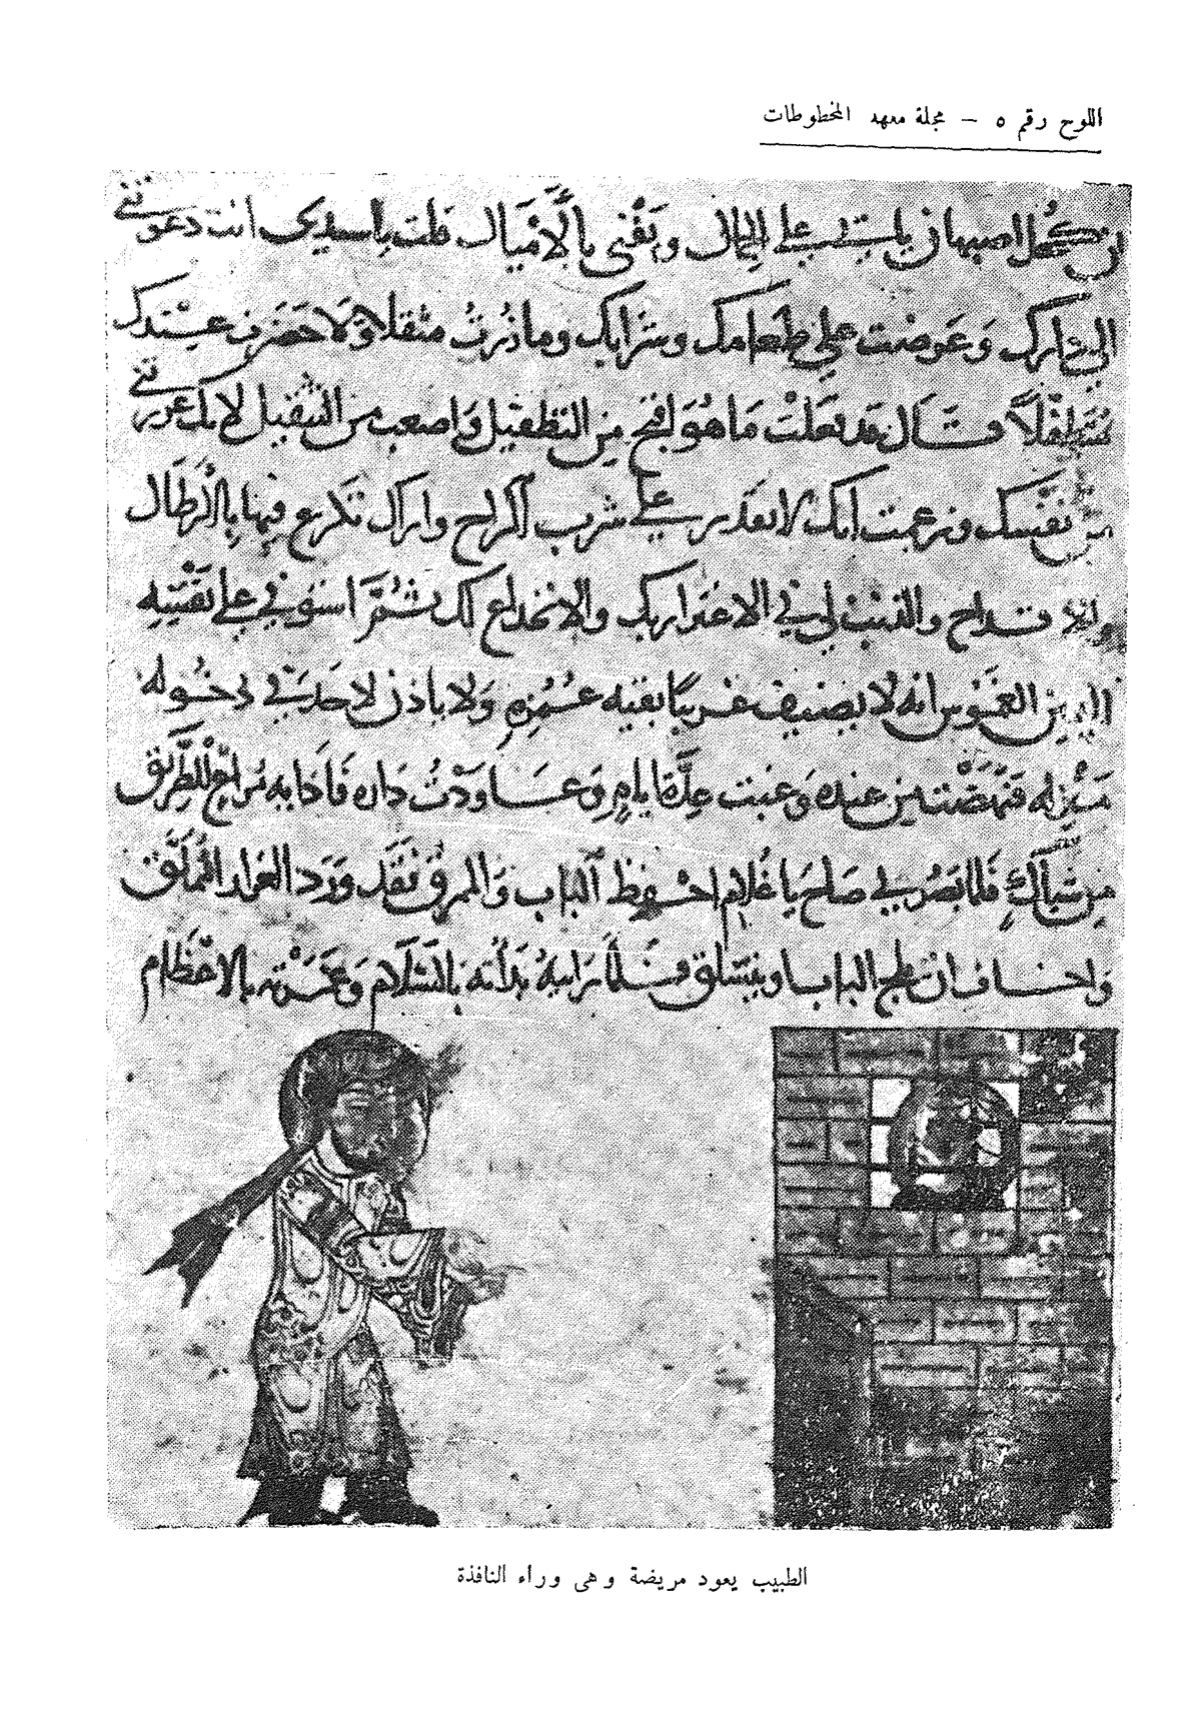 اللوح رقم ٥ – مجلة معهد المخطوطات
كحل اصبهان ياتيني على الجمال ويفنى بالأميال قلت ياسيدي انت دعوتني
الى دارك وَعَرضت على طعامك وشرابك وما زُرتُ مثقلا وَلا حضرت عندك
مُتَطفّلاً فقال قد فعلت مَا هُوَ اقبح مِن التطفيل واصعب من التثقيل لانك عررتني
من نفسك وزعمت انك لا تقدر على شرب الراح واراك تكرع فيها بِالارطال
والاقداح والذنب لي في الاغترار بك والانخداع لك ثُمَّ اسْتوفي على نفسِه
اليمين الغموس انه لا يضيف غريبًا بقية عُمْرِهِ وَلا ياذن لاحد في دخُوله
مَنْزله فنهضت من عنده وَغبت عدّة ايامٍ وَعاودتُ داره فَاذا به مراعٍ للطَّريق
مِن شباكٍ فلما بَصُر بي صاح يا غُلام احفظ الباب وَالمرق نقد وَرَد العرار المملق
واخاف ان يلج الباب او يتسلق فلما رايته بدأته بالسَّلام وَغمرته بالاعظام
الطبيب يعود مريضة وهى وراء النافذة